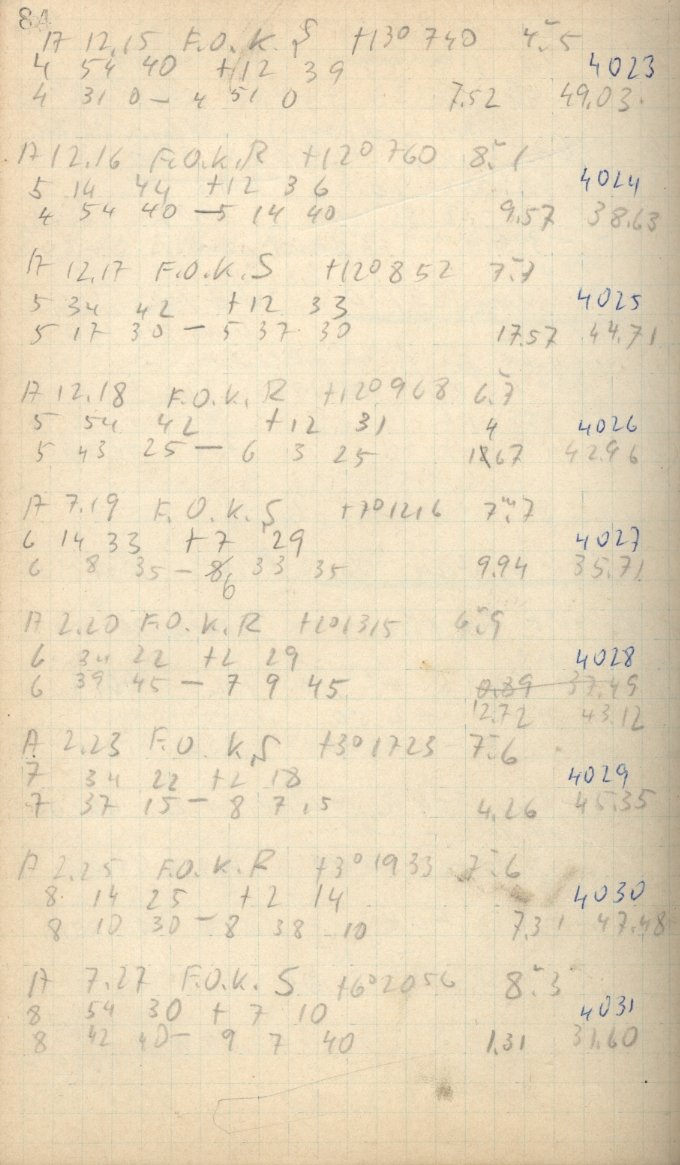 84
A 12.15 F.O.K.S +13° 740 4.ᵐ5
4 54 40 +12 39 4023
4 31 0 – 4 51 0 7.52 49.03.
A 12.16 F.O.K.R +12° 760 8.ᵐ1
5 14 44 +12 36 4024
4 54 40 – 5 14 40 9.57 38.63
A 12.17 F.O.K.S +12° 852 7.ᵐ7
5 34 42 +12 33 4025
5 17 30 – 5 37 30 17.57 44.71
A 12.18 F.O.K.R +12° 968 6.ᵐ7
5 54 42 +12 31 4 4026
5 43 25 – 6 3 25 67 42.96
A 7.19 F.O.K.S +7° 1216 7.ᵐ7
6 14 33 +7 29 4027
6 8 35 – 6 33 35 9.94 35.71
A 2.20 F.O.K.R +2° 1315 6.ᵐ9
6 34 22 +2 29 4028
6 39 45 – 7 9 45 0.89 37.49
12.72 43.12
A 2.23 F.O.K.S +3° 1723 7.ᵐ6
7 34 22 +2 18 4029
7 37 15 – 8 7 15 4.26 45.35
A 2.25 F.O.K.R +3° 1933 7.ᵐ6
8 14 25 +2 14 4030
8 10 30 – 8 38 10 7.31 47.48
A 7.27 F.O.K.S +6° 2056 8.ᵐ3
8 54 30 +7 10 4031
8 42 40 – 9 7 40 1.31 31.60